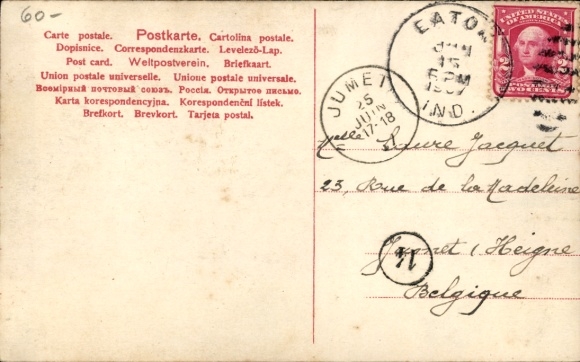 60-
Carte postale. Postkarte. Cartolina postale.
Dopisnice. Correspondenzkarte. Levelező-Lap.
Post card. Weltpostverein. Briefkaart.
Union postale universelle. Unione postale universale.
Всемірный почтовый союзъ. Россія. Открытое письмо.
Karta korespondencyjna. Korespondenční lístek.
Brefkort. Brevkort. Tarjeta postal.
EATON
JUN
15
5 PM
1907
IND.
UNITED STATES
OF AMERICA
2 2
POSTAGE
TWO CENTS
JUMET
25
JUIN
17-18
Melle Laure Jacquet
23, Rue de la Madeleine
Jumet (Heigne
14
Belgique